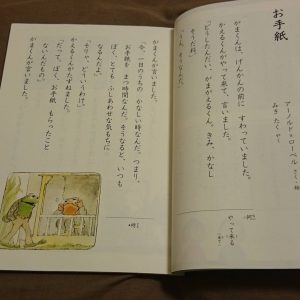 お手紙
アーノルド＝ローベル さく・絵
みき たく やく
がまくんは、げんかんの前に
すわっていました。
かえるくんがやって来て、言いました。
「どうしたんだい、がまがえるくん。きみ、かなし
そうだね。」
「うん、そうなんだ。」
やって来る
がまくんが言いました。
「今、一日のうちの かなしい時なんだ。つまり、
お手紙を まつ時間なんだ。そうなると、いつも
ぼく、とても ふしあわせな気もちに
なるんだよ。」
「そりゃ、どういうわけ。」
かえるくんがたずねました。
「だって、ぼく、お手紙 もらったこと
ないんだもの。」
がまくんが言いました。